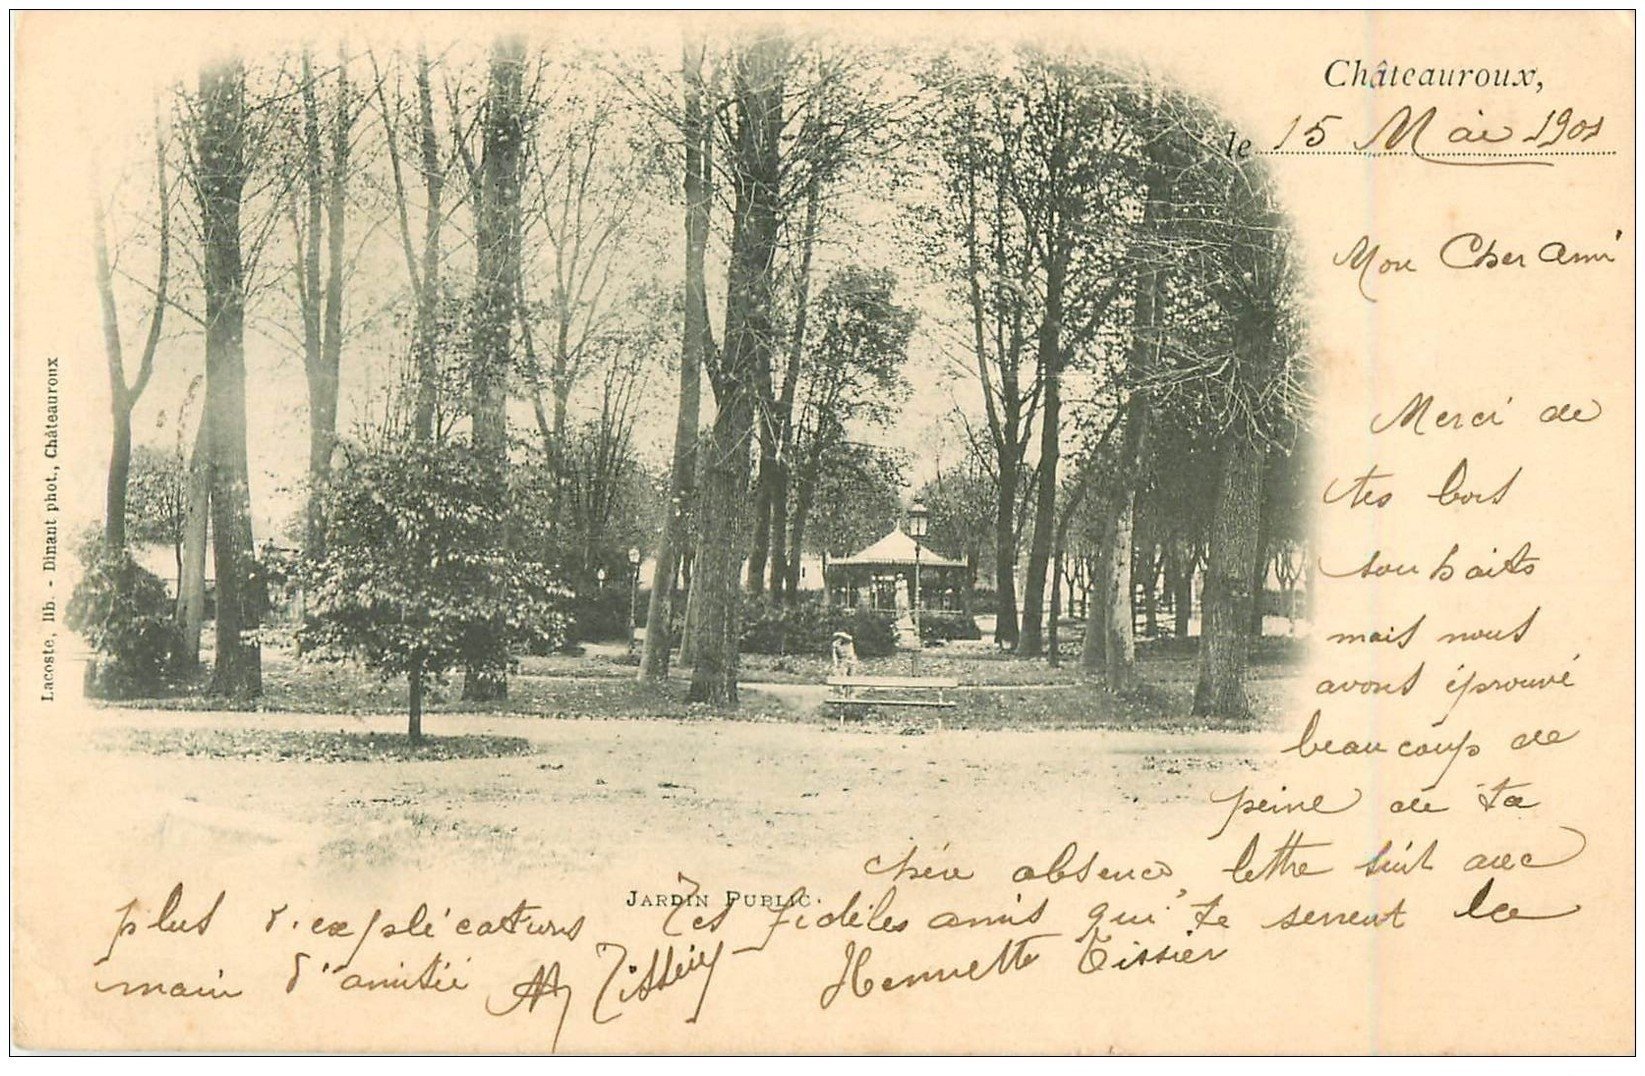 Châteauroux,
le 15 Mai 1901
Mon Cher Ami
Merci de
tes bons
souhaits
mais nous
avons éprouvé
beaucoup de
peine de ta
chère absence lettre suit avec
plus d'explications Tes fidèles amis qui te serrent la
main d'amitié Tissier Henriette Tissier
JARDIN PUBLIC.
Lacoste, lib. - Dinant phot., Châteauroux